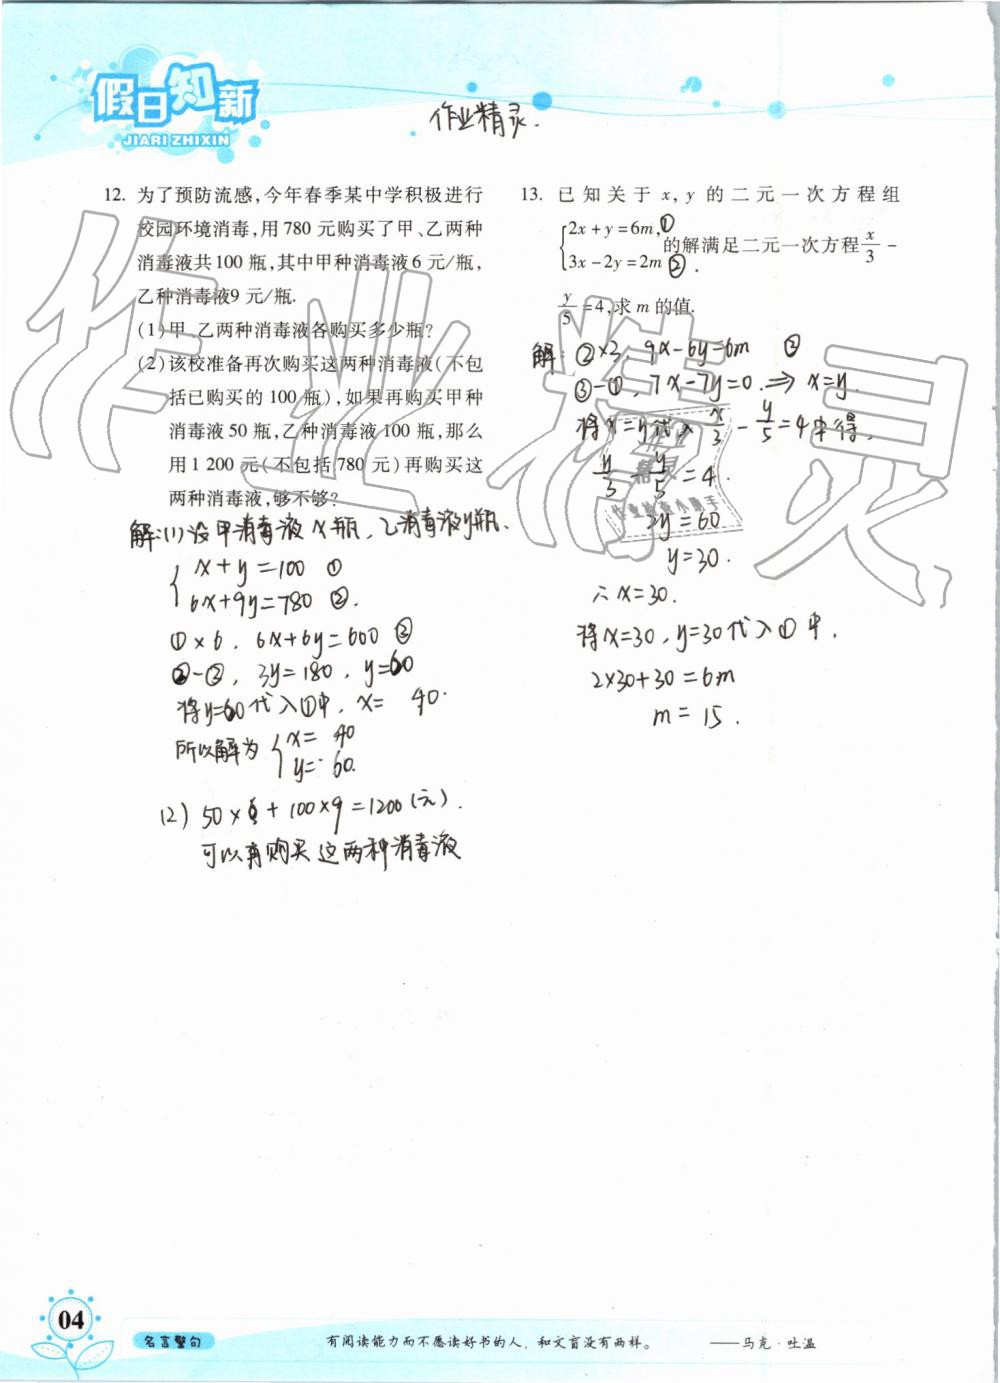 假日知新
JIARI ZHIXIN
作业精灵.
12. 为了预防流感,今年春季某中学积极进行
校园环境消毒,用780元购买了甲、乙两种
消毒液共100瓶,其中甲种消毒液6元/瓶,
乙种消毒液9元/瓶.
(1)甲、乙两种消毒液各购买多少瓶?
(2)该校准备再次购买这两种消毒液(不包
括已购买的100瓶),如果再购买甲种
消毒液50瓶,乙种消毒液100瓶,那么
用1 200元(不包括780元)再购买这
两种消毒液,够不够?
解:(1)设甲消毒液x瓶,乙消毒液y瓶.
x+y=100 ①
6x+9y=780 ②.
①×6, 6x+6y=600 ③
②-③, 3y=180, y=60
将y=60代入①中, x= 40.
所以解为 { x= 40
y= 60.
(2) 50×6+100×9=1200(元).
可以再购买这两种消毒液
13. 已知关于x,y的二元一次方程组
{2x+y=6m,①
3x-2y=2m ②
的解满足二元一次方程x/3-
y/5=4,求m的值.
解: ②×3, 9x-6y=6m ③
③-①, 7x-7y=0 ⇒ x=y.
将x=y代入x/3-y/5=4中得,
y/3-y/5=4.
2y=60
y=30.
∴x=30.
将x=30,y=30代入①中,
2×30+30=6m
m=15.
作业精灵
04
名言警句
有阅读能力而不愿读好书的人,和文盲没有两样。 ——马克·吐温